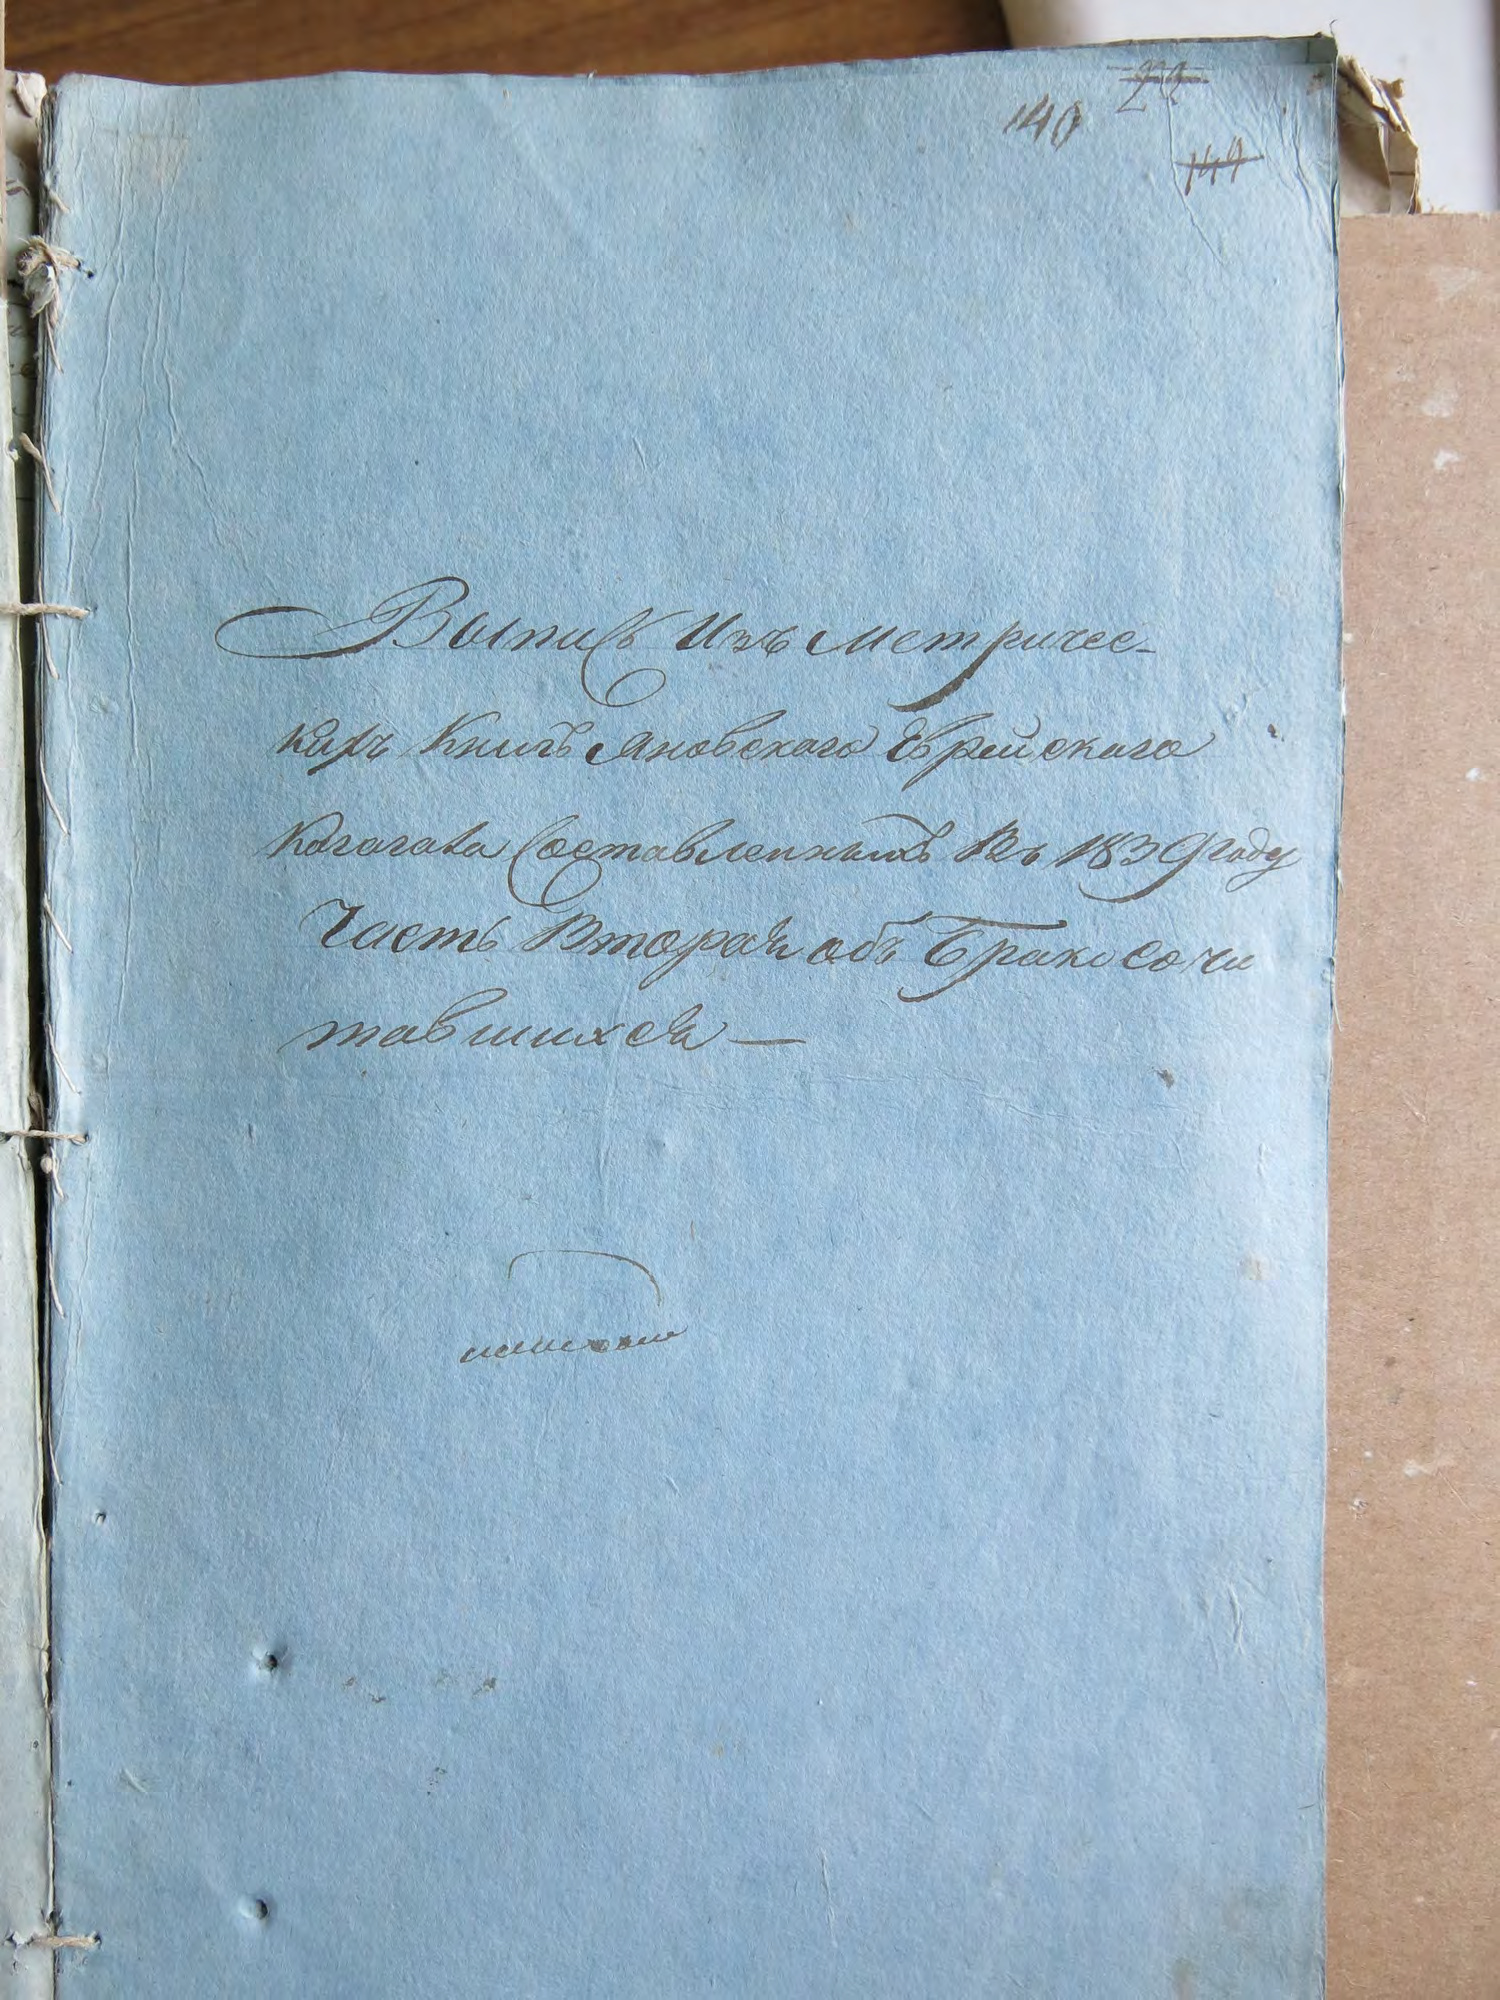 140
Выпись Изъ Метричес-
кихъ Книгъ Яновскаго Еврейскаго
Кагала Составленныхъ Въ 1839 году
Часть Вторая объ Бракосочи
тавшихся —